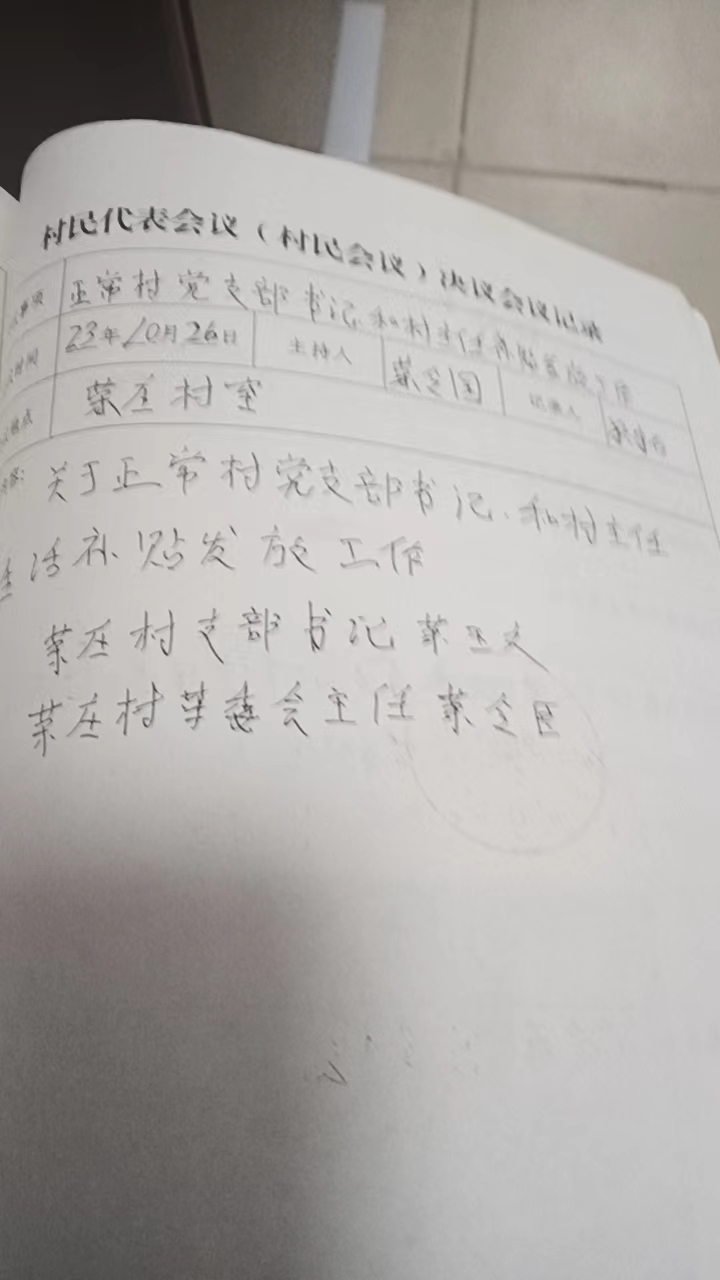 村民代表会议（村民会议）决议会议记录
事项 正常村党支部书记和村主任补贴发放工作
时间 23年10月26日 主持人 记录人
地点 菜庄村室
内容: 关于正常村党支部书记、和村主任
生活补贴发放工作
菜庄村支部书记
菜庄村委会主任